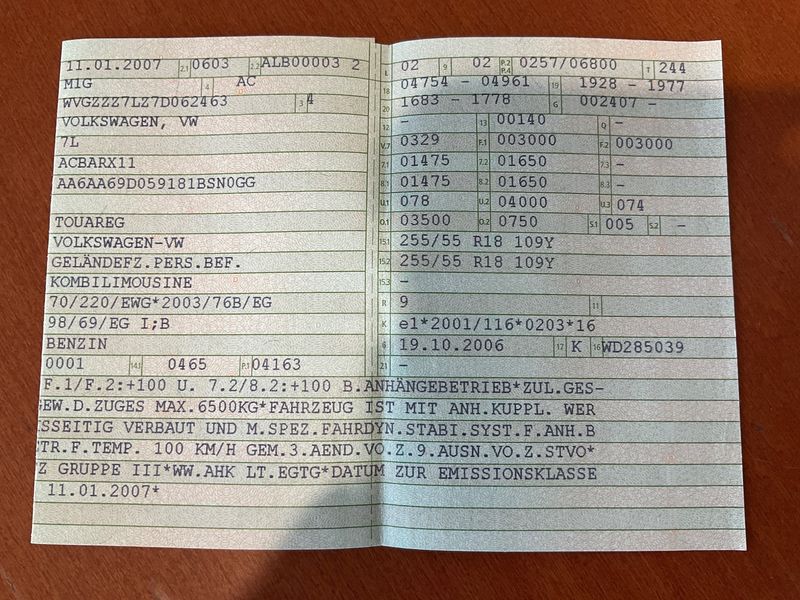 11.01.2007 2.1 0603 2.2 ALB00003 2
M1G 4 AC
WVGZZZ7LZ7D062463 3 4
VOLKSWAGEN, VW
7L
ACBARX11
AA6AA69D059181BSN0GG
TOUAREG
VOLKSWAGEN-VW
GELÄNDEFZ.PERS.BEF.
KOMBILIMOUSINE
70/220/EWG*2003/76B/EG
98/69/EG I;B
BENZIN
0001 14.1 0465 P.1 04163
L 02 9 02 P.2 P.4 0257/06800 T 244
18 04754 - 04961 19 1928 - 1977
20 1683 - 1778 G 002407 -
12 - 13 00140 Q -
V.7 0329 F.1 003000 F.2 003000
7.1 01475 7.2 01650 7.3 -
8.1 01475 8.2 01650 8.3 -
U.1 078 U.2 04000 U.3 074
O.1 03500 O.2 0750 S.1 005 S.2 -
15.1 255/55 R18 109Y
15.2 255/55 R18 109Y
15.3 -
R 9 11
K e1*2001/116*0203*16
6 19.10.2006 17 K 16 WD285039
21 -
F.1/F.2:+100 U. 7.2/8.2:+100 B.ANHÄNGEBETRIEB*ZUL.GES-
GEW.D.ZUGES MAX.6500KG*FAHRZEUG IST MIT ANH.KUPPL. WER
KSSEITIG VERBAUT UND M.SPEZ.FAHRDYN.STABI.SYST.F.ANH.B
TR.F.TEMP. 100 KM/H GEM.3.AEND.VO.Z.9.AUSN.VO.Z.STVO*
Z GRUPPE III*WW.AHK LT.EGTG*DATUM ZUR EMISSIONSKLASSE
11.01.2007*